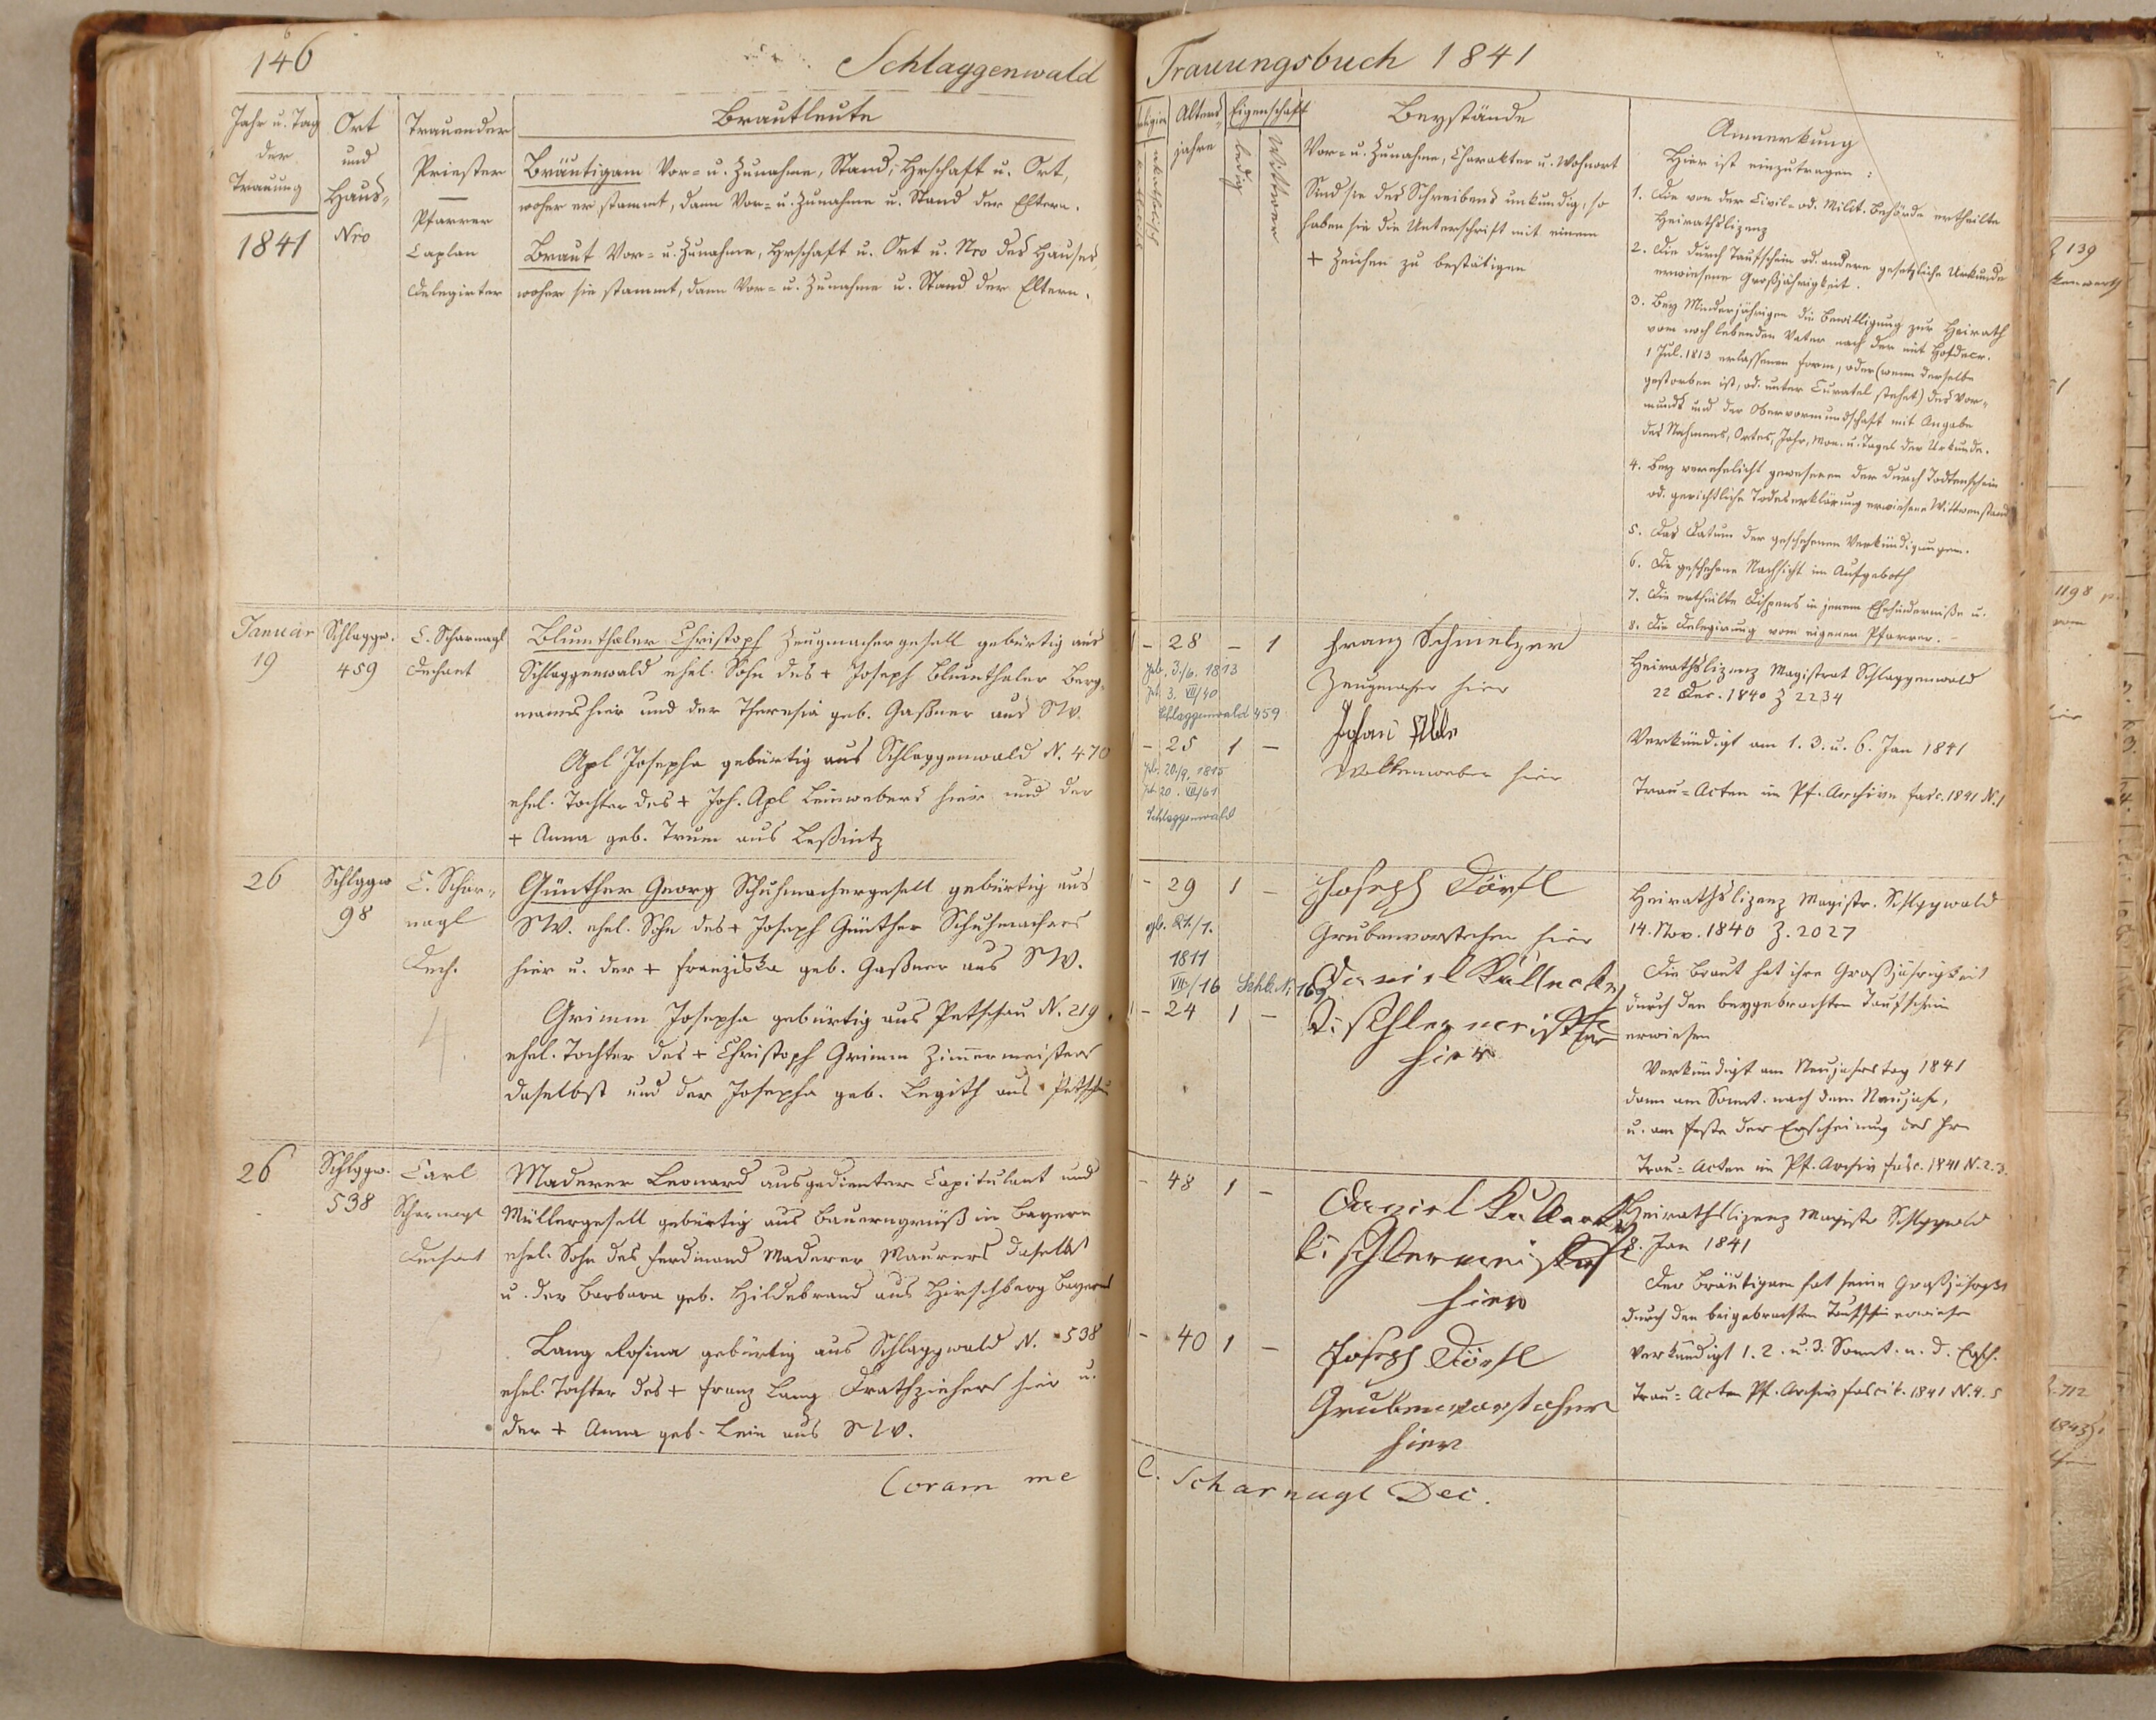 146
Schlaggenwald
Jahr u. Tag
der
Trauung
1841
Ort
und
Haus-
Nro
Trauender
Priester
Pfarrer
Caplan
Delegirter
Brautleute
Bräutigam Vor- u. Zunahme, Stand, Hrschaft u. Ort,
woher er stammt, dann Vor- u. Zunahme u. Stand der Eltern.
Braut Vor- u. Zunahme, Hrschaft u. Ort u. Nro des Hauses,
woher sie stammt, dann Vor- u. Zunahme u. Stand der Eltern.
Januar
19
Schlaggw.
459
C. Scharnagl
Dechant
Blumthaler Christoph Zeugmachergesell gebürtig aus
Schlaggenwald ehel. Sohn des + Joseph Blumthaler Berg-
manns hier und der Theresia geb. Gaßner aus SW.
Apl Josepha gebürtig aus Schlaggenwald N. 470
ehel. Tochter des + Joh. Apl Leinwebers hier und der
+ Anna geb. Trum aus Leßnitz
26
Schlggw
98
C. Schar-
nagl
Dech.
Günther Georg Schuhmachergesell gebürtig aus
SW. ehel. Sohn des + Joseph Günther Schuhmachers
hier u. der + Franziska geb. Gaßner aus SW.
Grimm Josepha gebürtig aus Petschau N. 219
ehel. Tochter des + Christoph Grimm Zimmermeisters
daselbst und der Josepha geb. Legith aus Petschau
4.
26
Schlggw.
538
Carl
Scharnagl
Dechant
Maderer Leonard ausgedienter Capitulant und
Müllergesell gebürtig aus in Bayern
ehel. Sohn des Ferdinand Maderer Maurers daselbst
u. der Barbara geb. Hildebrand aus Hirschberg Bayerns
Lang Rosina gebürtig aus Schlaggwald N. 538
ehel. Tochter des + Franz Lang Drathziehers hier u.
der + Anna geb. Lein aus SW.
Coram me
Trauungsbuch 1841
Religion
katholisch
akatholisch
Alters-
jahre
Eigenschaft
ledig
Wittwer
Beystände
Vor- u. Zunahme, Charakter u. Wohnort
Sind sie des Schreibens unkundig, so
haben sie die Unterschrift mit einem
+ Zeichen zu bestätigen
Anmerkung
Hier ist einzutragen:
1. Die von der Civil- od. Milit. Behörde ertheilte
Heirathslizenz
2. Die durch Taufschein od. andere gesetzliche Urkunde
erwiesene Großjährigkeit.
3. Bey Minderjährigen die Bewilligung zur Heirath
vom noch lebenden Vater nach der mit Hofdecr.
1 Jul. 1813 erlassenen Form, oder (wenn derselbe
gestorben ist, od. unter Curatel stehet) des Vor-
munds und der Obervormundschaft mit Angabe
des Nahmens, Ortes, Jahr, Mon. u. Tages der Urkunde.
4. Bey verehelicht gewesenen der durch Todtenschein
od. gerichtliche Todeserklärung erwiesene Wittwenstand
5. Das Datum der geschehenen Verkündigungen.
6. Die geschehene Nachsicht im Aufgeboth
7. Die ertheilte Dispens in jenem Ehehinderniße u.
8. Die Delegirung vom eigenen Pfarrer.
1 – 28 – 1
geb. 3./6. 1813
3. VII/40
Schlaggenwald 459
1 – 25 1 –
geb. 20./9. 1815
20. VII/61
Schlaggenwald
Franz Schmelzer
Zeugmacher hier
Johan
hier
Heirathslizenz Magistrat Schlaggenwald
22 Dec. 1840 Z 2234
Verkündigt am 1. 3. u. 6. Jan 1841
Trau-Acten im Pf. Archive fasc. 1841 N. 1
– 29 1 –
geb. 21./1.
1811
VII/16 Schl. N. 169
1 – 24 1 –
Joseph Dörfl
Grubenvorsteher hier
Daniel
Tischlermeister
hier
Heirathslizenz Magistr. Schlggwald
14. Nov. 1840 Z. 2027
Die Braut hat ihre Großjährigkeit
durch den beygebrachten Taufschein
erwiesen
Verkündigt am Neujahrstag 1841
dann am Sonnt. nach dem Neujahr,
u. am Feste der Erscheinung des Hrn
Trau-Acten im Pf. Archiv fasc. 1841 N. 2. 3.
– 48 1 –
1 – 40 1 –
Daniel
Tischlermeister
hier
Joseph Dörfl
Grubenvorsteher
hier
Heirathslizenz Magistr Schlggwald
8. Jan 1841
Der Bräutigam hat seine Großjährigkt
durch den beigebrachten Taufschein erwiesen
Verkündigt 1. 2. u. 3. Sonnt. n. d. Ersch.
Trau-Acten Pf. Archiv fascik. 1841 N. 4. 5
C. Scharnagl Dec.
Z 139
1198